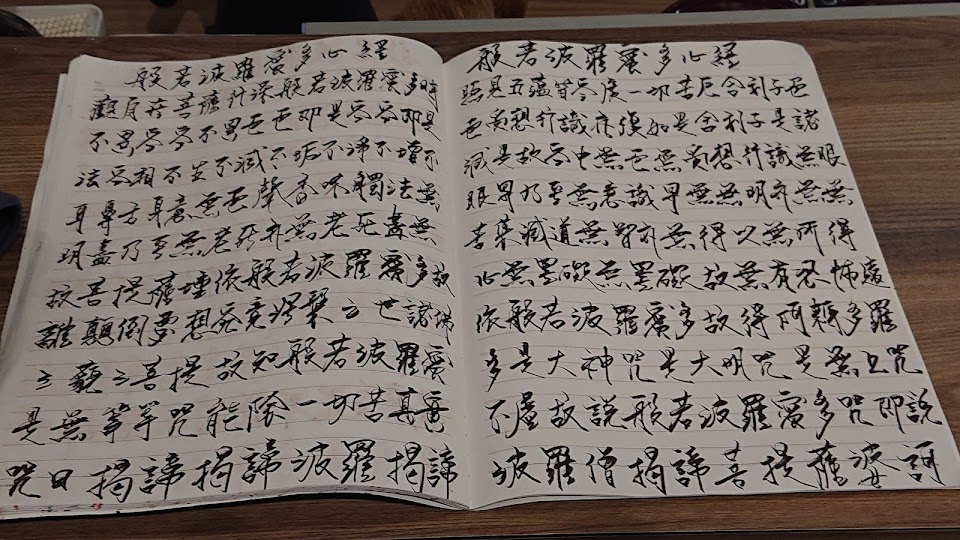 般若波羅蜜多心經
般若波羅蜜多心經
觀自在菩薩行深般若波羅蜜多時
照見五蘊皆空度一切苦厄舍利子色
不異空空不異色色即是空空即是
色受想行識亦復如是舍利子是諸
法空相不生不滅不垢不淨不增不
減是故空中無色無受想行識無眼
耳鼻舌身意無色聲香味觸法無
眼界乃至無意識界無無明亦無無
明盡乃至無老死亦無老死盡無
苦集滅道無智亦無得以無所得
故菩提薩埵依般若波羅蜜多故
心無罣礙無罣礙故無有恐怖遠
離顛倒夢想究竟涅槃三世諸佛
依般若波羅蜜多故得阿耨多羅
三藐三菩提故知般若波羅蜜
多是大神咒是大明咒是無上咒
是無等等咒能除一切苦真實
不虛故說般若波羅蜜多咒即說
咒曰揭諦揭諦波羅揭諦
波羅僧揭諦菩提薩婆訶